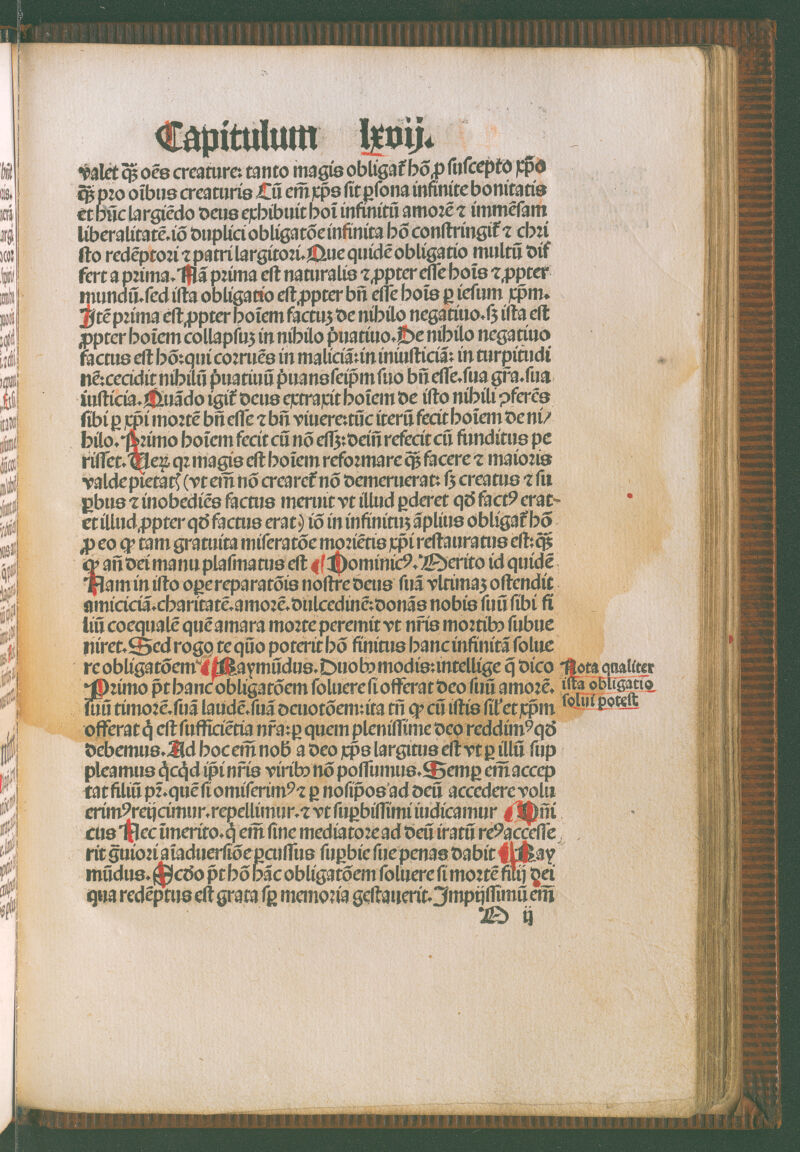 Capitulum lxvij.
valet q̃ʒ oẽs creature: tanto magis obligat᷑ hõ ꝓ suscepto xp̃o
q̃ʒ pro oĩbus creaturis Cũ em̃ xp̃s sit ꝑsona infinite bonitatis
et hũc largiẽdo deus exhibuit hoĩ infinitũ amorẽ ⁊ immẽsam
liberalitatẽ. iõ duplici obligatõe infinita hõ constringit᷑ ⁊ chri
sto redẽptori ⁊ patri largitori. Que quidẽ obligatio multũ dif
fert a prima. Nã prima est naturalis ⁊ ꝓpter esse hoĩs ⁊ ꝓpter
mundũ. sed ista obligatio est ꝓpter bñ esse hoĩs ꝑ iesum xp̃m.
Itẽ prima est ꝓpter hoĩem factuʒ de nihilo negatiuo. sʒ ista est
ꝓpter hoĩem collapsuʒ in nihilo p̃uatiuo. De nihilo negatiuo
factus est hõ: qui corruẽs in maliciã: in iniusticiã: in turpitudi
nẽ: cecidit nihilũ p̃uatiuũ p̃uans seip̃m suo bñ esse. sua gr̃a. sua
iusticia. Quãdo igit᷑ deus extraxit hoĩem de isto nihili ꝯferẽs
sibi ꝑ xp̃i mortẽ bñ esse ⁊ bñ viuere: tũc iterũ fecit hoĩem de ni/
hilo. Primo hoĩem fecit cũ nõ essʒ: deiñ refecit cũ funditus pe
risset. Ueꝝ qꝛ magis est hoĩem reformare q̃ʒ facere ⁊ maioris
valde pietat᷑ (vt em̃ nõ crearet᷑ nõ demeruerat: sʒ creatus ⁊ su
ꝑbus ⁊ inobediẽs factus meruit vt illud ꝑderet qđ factꝰ erat-
et illud ꝓpter qđ factus erat) iõ in infinituʒ ãplius obligat᷑ hõ
ꝓ eo ꝙ tam gratuita miseratõe moriẽtis xp̃i restauratus est: q̃ʒ
ꝙ añ dei manu plasmatus est ¶ Dominicꝰ. Merito id quidẽ
Nam in isto oꝑe reparatõis nostre deus suã vltimaʒ ostendit
amiciciã. charitatẽ. amorẽ. dulcedinẽ: donãs nobis suũ sibi fi
liũ coequalẽ quẽ amara morte peremit vt nr̃is mortibꝰ subue
niret. Sed rogo te quõ poterit hõ finitus hanc infinitã solue
re obligatõem ¶ Raymũdus. Duobꝰ modis: intellige q̃ dico
Primo p̃t hanc obligatõem soluere si offerat deo suũ amorẽ.
suũ timorẽ. suã laudẽ. suã deuotõem: ita tñ ꝙ cũ istis sil̃ et xp̃m
offerat q̇ est sufficiẽtia nr̃a: ꝑ quem plenissime deo reddimꝰ qđ
debemus. Ad hoc em̃ nob̃ a deo xp̃s largitus est vt ꝑ illũ sup
pleamus q̇cq̇d ip̃i nr̃is viribꝰ nõ possumus. Semꝑ em̃ accep
tat filiũ pr̃. quẽ si omiserimꝰ ⁊ ꝑ nosip̃os ad deũ accedere volu
erimꝰ reijcimur. repellimur. ⁊ vt suꝑbissimi iudicamur ¶ Dñi
cus Nec ĩmerito. q̇ em̃ sine mediatore ad deũ iratũ reꝰ accesse
rit g̃uiori aĩaduersiõe ꝑcussus suꝑbie sue penas dabit ¶ Ray
mũdus. Scđo p̃t hõ hãc obligatõem soluere si mortẽ filij dei
qua redẽptus est grata sꝑ memoria gestauerit. Impijssimũ em̃
D ij
Nota qualiter
ista obligatio
solui potest